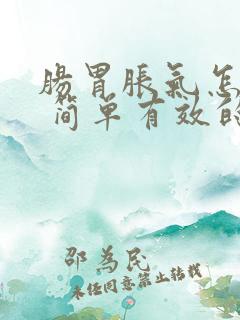 肠胃胀气怎
简单有效的
邵为民
未经同意禁止转载